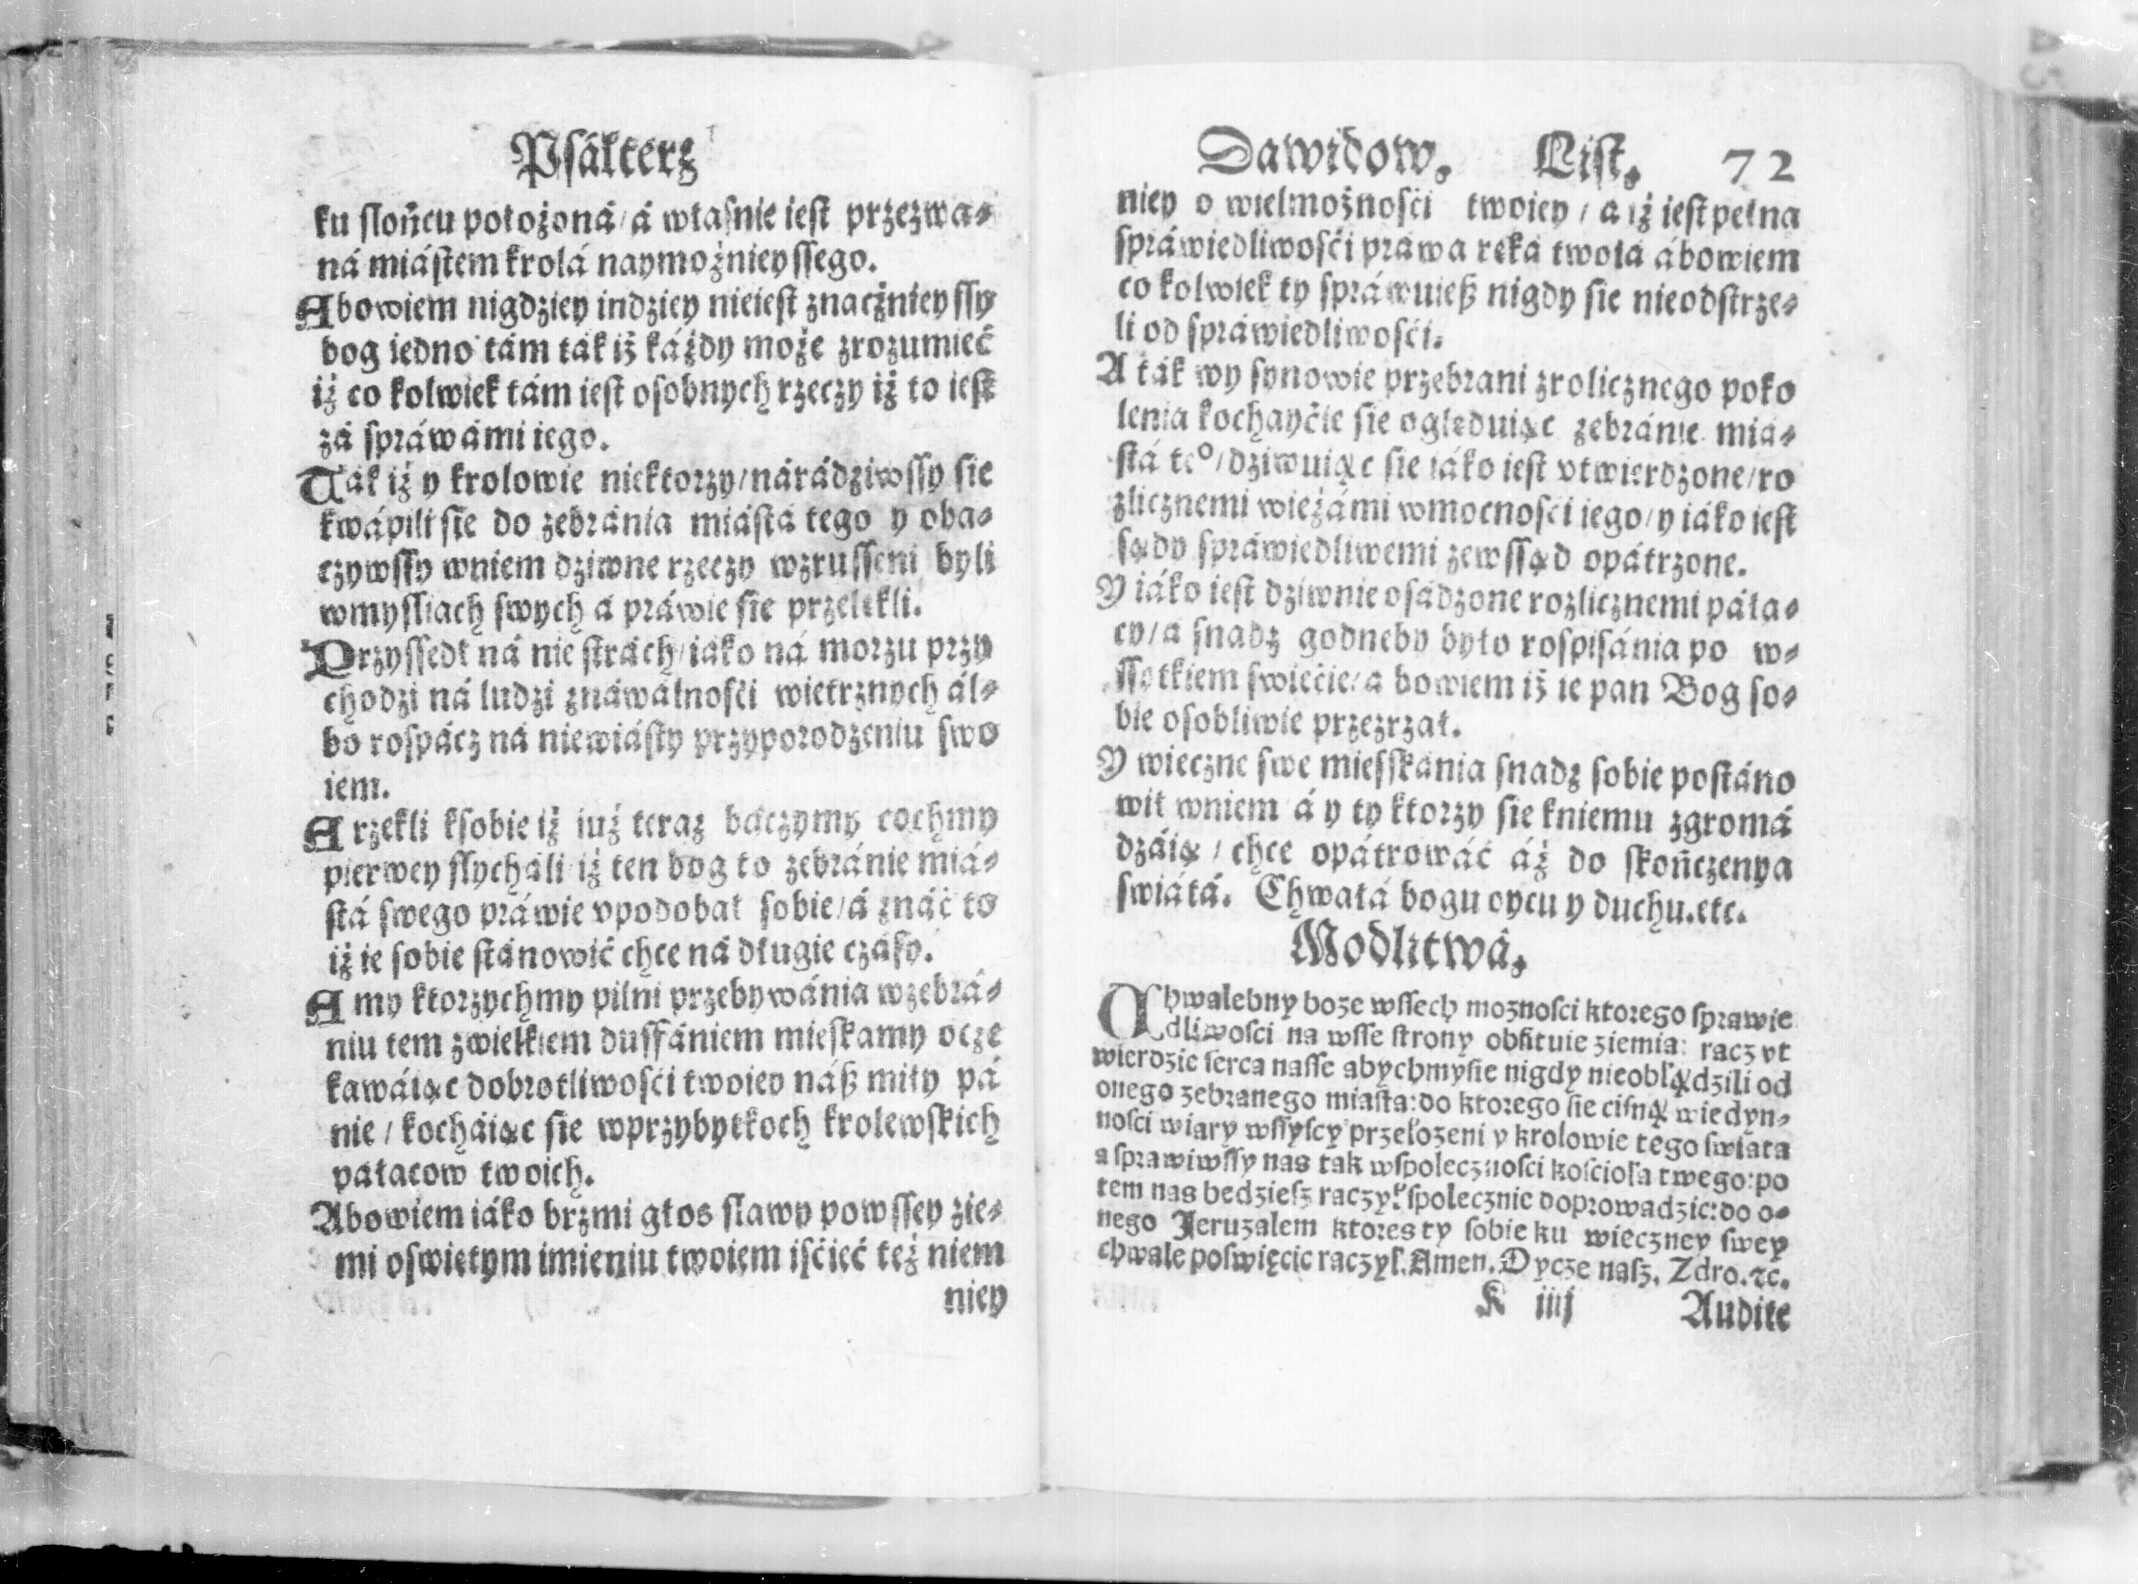 Psáłterz
ku słońcu położoná / á własnie iest przezwa⸗
ná miástem krolá naymożnieyssego.
Abowiem nigdziey indziey nieiest znaczżnieyssy
bog iedno tám ták iż káżdy może zrozumieć
iż co kolwiek tám iest osobnych rzeczy iż to iest
zá spráwámi iego.
Ták iż y krolowie niektorzy / nárádziwssy sie
kwápili sie do zebránia miástá tego y oba⸗
czywssy wniem dziwne rzeczy wzrusseni byli
wmysliach swych á práwie sie przelekli.
Przyssedł ná nie strách / iáko ná morzu przy
chodzi ná ludzi znáwáłności wietrznych ál⸗
bo rospácz ná niewiásty przyporodzeniu swo
iem.
A rzekli ksobie iż iuż teraz baczymy cochmy
pierwey slycháli iż ten bog to zebránie miá⸗
stá swego práwie vpodobał sobie / á znáć to
iż ie sobie stánowić chce ná długie czásy.
A my ktorzychmy pilni przebywánia wzebrá⸗
niu tem zwielkiem duffániem mieskamy ocze
kawáiąc dobrotliwości twoiey náß miły pá
nie / kocháiąc sie wprzybytkoch krolewskich
pałacow twoich.
Abowiem iáko brzmi głos slawy powssey zie⸗
mi oswiętym imieniu twoiem iśćieć też niem
niey
Dawidow. List. 72
niey o wielmożności twoiey / a iż iest pełna
spráwiedliwości prawa reká twoiá ábowiem
co kolwiek ty spráwuieß nigdy sie nieodstrze⸗
li od spráwiedliwości.
A ták wy synowie przebrani zrolicznego poko
lenia kochayćie sie oględuiąc zebránie miá⸗
stá te° / dziwuiąc sie iáko iest vtwierdzone / ro
zlicznemi wieżámi wmocności iego / y iáko iest
sądy spráwiedliwemi zewssąd opátrzone.
Y iáko iest dziwnie osádzone rozlicznemi páła⸗
cy / a snadz godneby było rospisánia po w⸗
ssytkiem swiećie / a bowiem iż ie pan Bog so⸗
bie osobliwie przezrzał.
Y wieczne swe miesskánia snadz sobie postáno
wił wniem á y ty ktorzy sie kniemu zgromá
dzáią / chce opátrowáć áż do skończenya
swiátá. Chwałá bogu oycu y duchu. etc.
Modlitwá.
Chwalebny boze wssech moznosci ktorego sprawie
dliwosci na wsse strony obfituie ziemia: racz vt
wierdzic serca nasse abychmysie nigdy nieobłądzili od
onego zebranego miasta: do ktorego sie cisną wiedyn⸗
nosci wiary wssyscy przełozeni y krolowie tego swiata
a sprawiwssy nas tak wspolecznosci kościoła twego: po
tem nas bedziesz raczył spolecznie doprowadzic: do o⸗
nego Jeruzalem ktores ty sobie ku wieczney swey
chwale poswięcic raczył. Amen. Oycze nasz. Zdro. ⁊c.
K iiij Audite